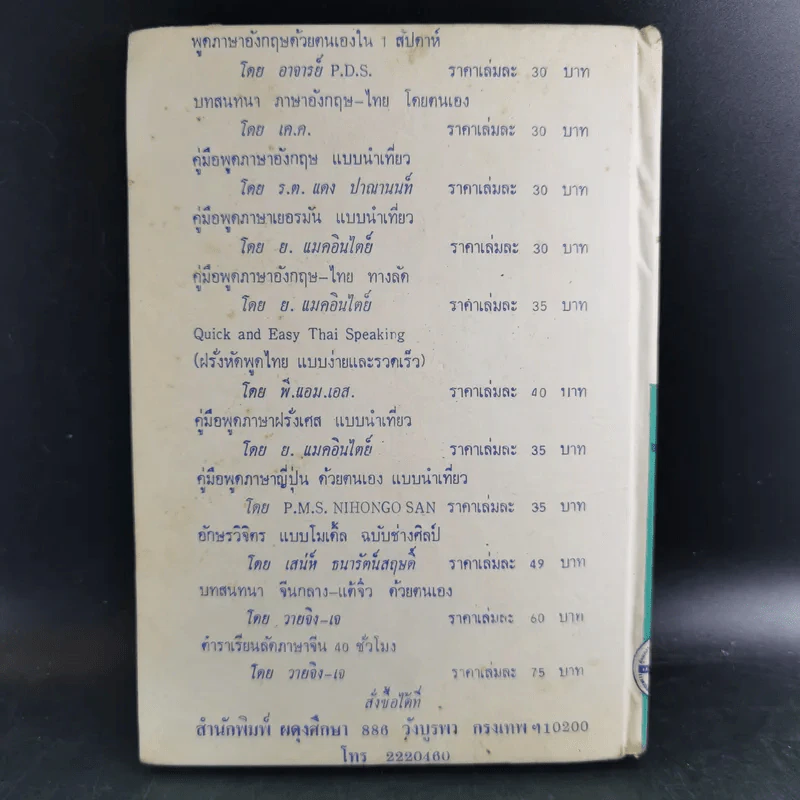 พูดภาษาอังกฤษด้วยตนเองใน 1 สัปดาห์
โดย อาจารย์ P.D.S. ราคาเล่มละ 30 บาท
บทสนทนา ภาษาอังกฤษ-ไทย โดยตนเอง
โดย เค.ค. ราคาเล่มละ 30 บาท
คู่มือพูดภาษาอังกฤษ แบบนำเที่ยว
โดย ร.ต. แดง ปาณานนท์ ราคาเล่มละ 30 บาท
คู่มือพูดภาษาเยอรมัน แบบนำเที่ยว
โดย ย. แมคอินไตย์ ราคาเล่มละ 30 บาท
คู่มือพูดภาษาอังกฤษ-ไทย ทางลัด
โดย ย. แมคอินไตย์ ราคาเล่มละ 35 บาท
Quick and Easy Thai Speaking
(ฝรั่งหัดพูดไทย แบบง่ายและรวดเร็ว)
โดย พี.แอม.เอส. ราคาเล่มละ 40 บาท
คู่มือพูดภาษาฝรั่งเศส แบบนำเที่ยว
โดย ย. แมคอินไตย์ ราคาเล่มละ 35 บาท
คู่มือพูดภาษาญี่ปุ่น ด้วยตนเอง แบบนำเที่ยว
โดย P.M.S. NIHONGO SAN ราคาเล่มละ 35 บาท
อักษรวิจิตร แบบโมเด็ล ฉบับช่างศิลป์
โดย เสน่ห์ ธนารัตน์สฤษดิ์ ราคาเล่มละ 49 บาท
บทสนทนา จีนกลาง-แต้จิ๋ว ด้วยตนเอง
โดย วายจิง-เจ ราคาเล่มละ 60 บาท
ตำราเรียนลัดภาษาจีน 40 ชั่วโมง
โดย วายจิง-เจ ราคาเล่มละ 75 บาท
สั่งซื้อได้ที่
สำนักพิมพ์ ผดุงศึกษา 886 วังบูรพา กรุงเทพฯ 10200
โทร 2220460